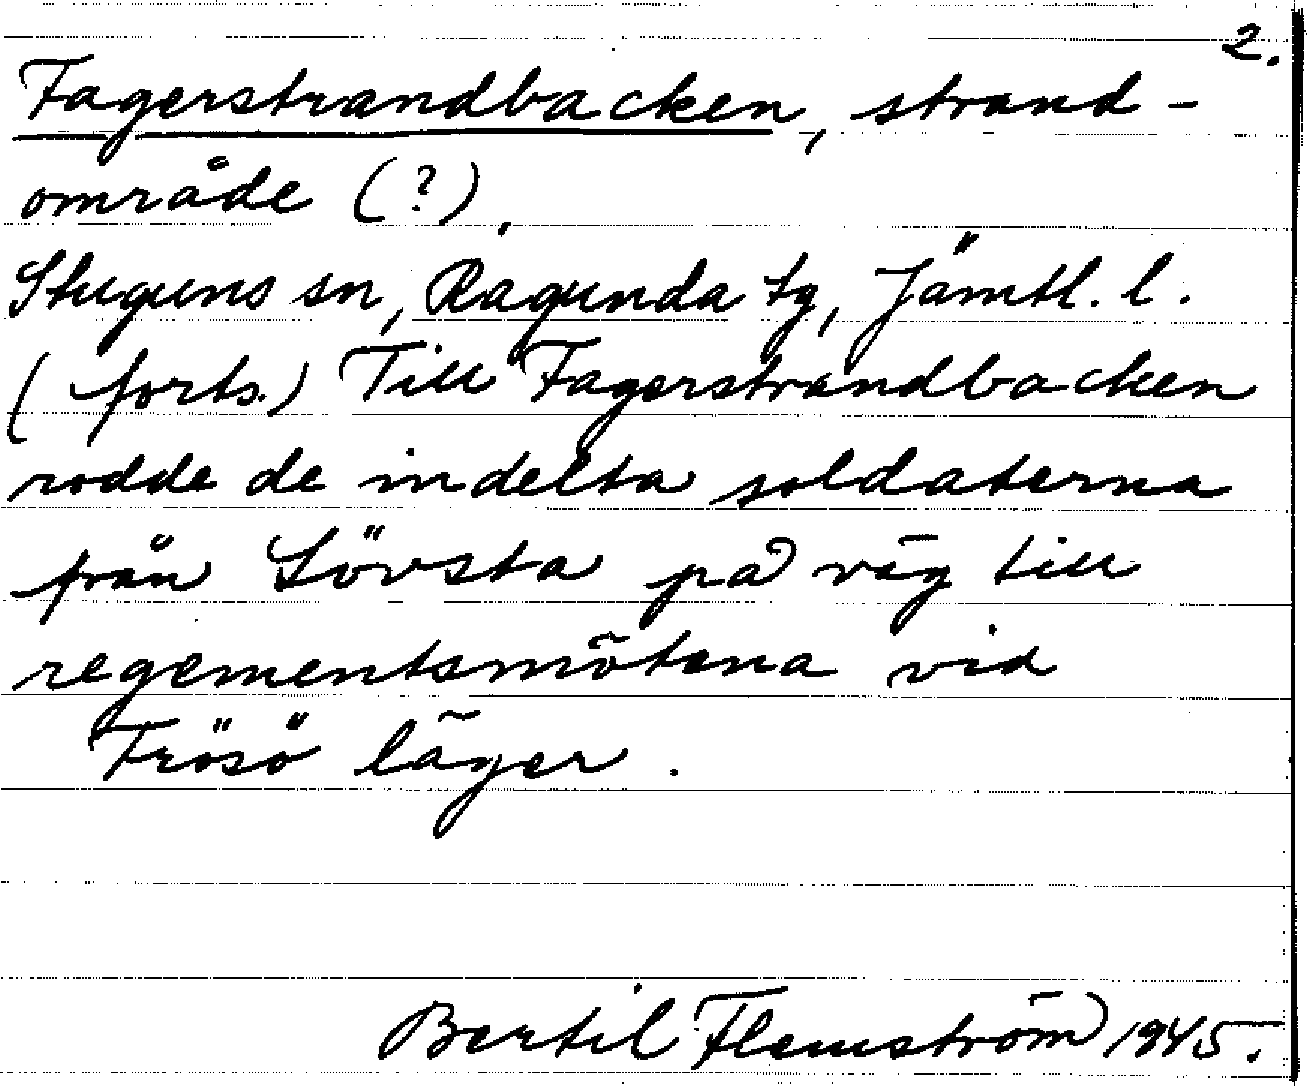 2.
Fagerstrandbacken, strand-
område (?),
Stuguns sn, Ragunda tg, Jämtl. l.
(forts.) Till Fagerstrandbacken
rodde de indelta soldaterna
från Lövsta på väg till
regementsmötena vid
Frösö läger.
Bertil Flemström 1945.